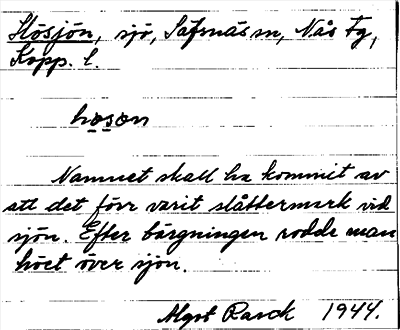 Hösjön, sjö, Säfsnäs sn, Nås tg,
Kopp. l.
hosøn
Namnet skall ha kommit av
att det förr varit slåttermark vid
sjön. Efter bärgningen rodde man
höet över sjön.
Algot Rasck 1944.